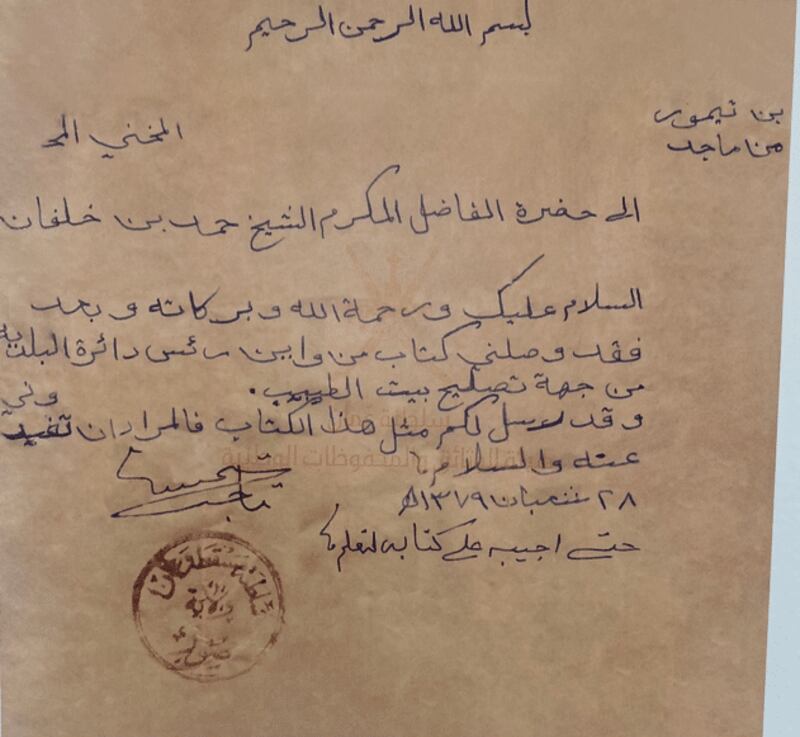 بسم الله الرحمن الرحيم
بن تيمور
من ماجد
المخني المح
الى حضرة الفاضل المكرم الشيخ حمد بن خلفان
السلام عليك ورحمة الله وبركاته وبعد
فقد وصلني كتاب من وابن رئس دائرة البلدية
من جهة تصليح بيت الطبيب.
وقد ارسل لكم مثل هذا الكتاب فالمراد ان تفيدوني
عنه والسلام
٢٨ شعبان ١٣٧٩ه
حتى اجيبه على كتابه لتعلم
ماجد
ولاية